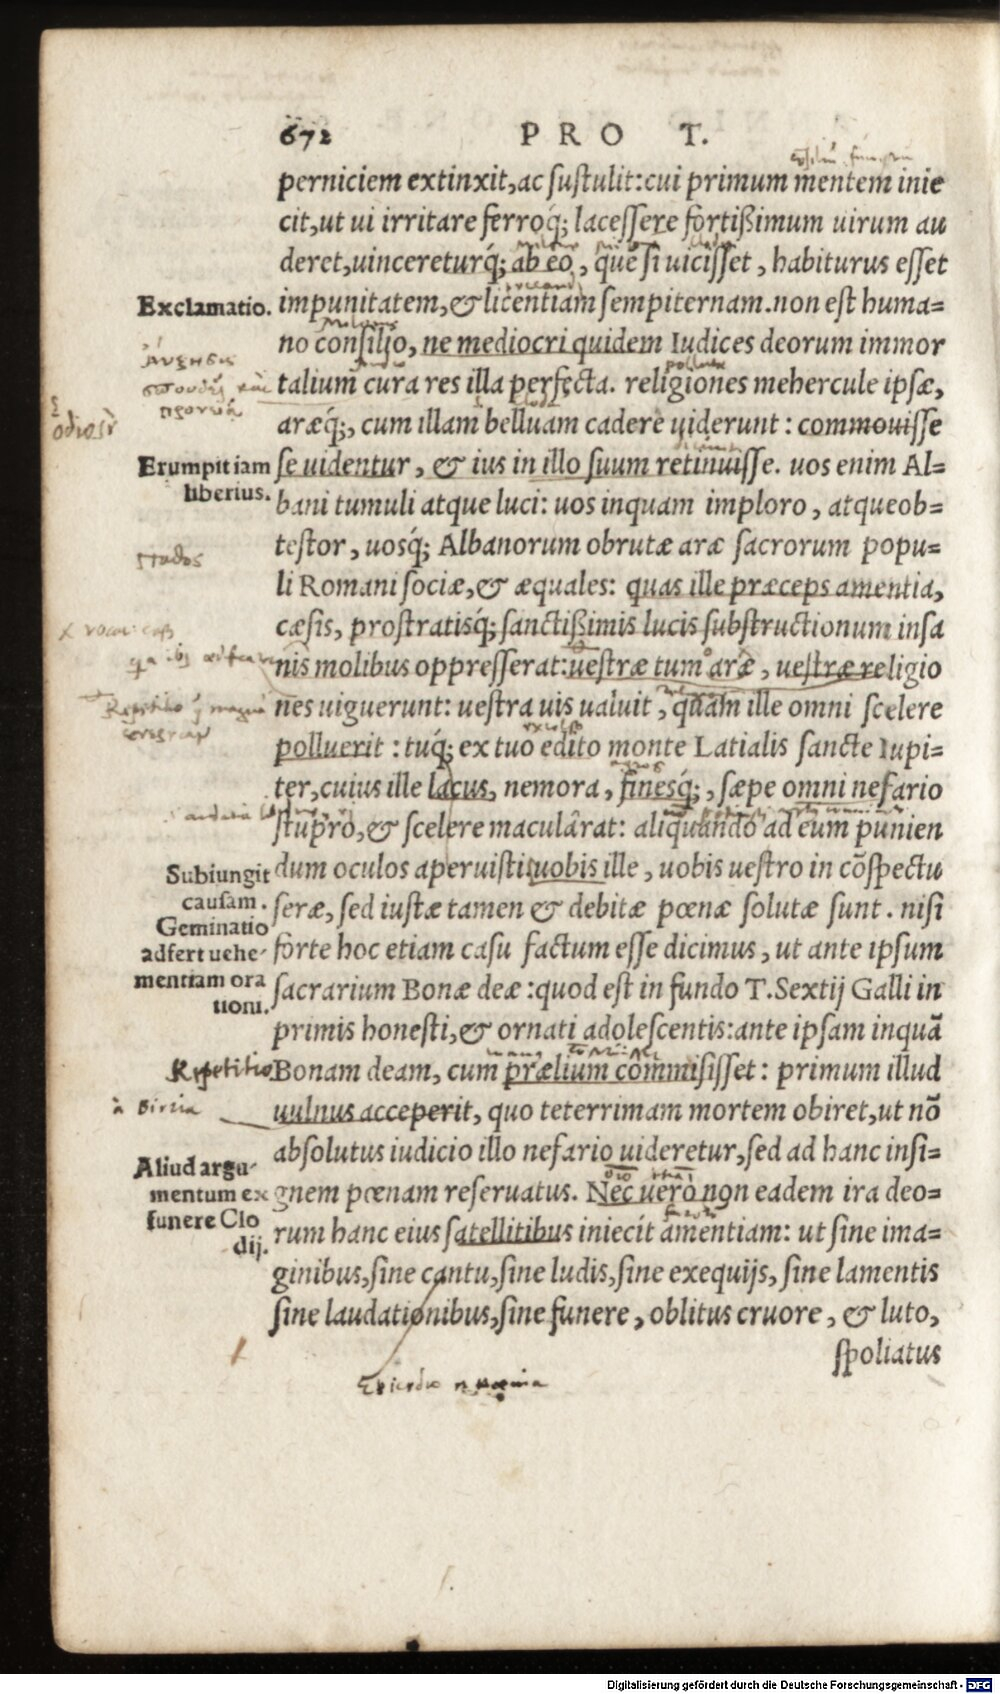 672 PRO T.
perniciem extinxit, ac sustulit: cui primum mentem inie
cit, ut ui irritare ferroq́; lacessere fortißimum uirum au
deret, uincereturq́; ab eo, quē si uicisset, habiturus esset
Exclamatio.
impunitatem, & licentiam sempiternam. non est huma=
no consilio, ne mediocri quidem Iudices deorum immor
talium cura res illa perfecta. religiones mehercule ipsæ,
aræq́;, cum illam belluam cadere uiderunt: commouisse
Erumpit iam
liberius.
se uidentur, & ius in illo suum retinuisse. uos enim Al=
bani tumuli atque luci: uos inquam imploro, atque ob=
testor, uosq́; Albanorum obrutæ aræ sacrorum popu=
li Romani sociæ, & æquales: quas ille præceps amentia,
cæsis, prostratisq́; sanctißimis lucis substructionum insa
nis molibus oppresserat: uestræ tum aræ, uestræ religio
nes uiguerunt: uestra uis ualuit, quam ille omni scelere
polluerit: tuq́; ex tuo edito monte Latialis sancte Iupi=
ter, cuius ille lacus, nemora, finesq́;, sæpe omni nefario
stupro, & scelere maculârat: aliquando ad eum punien
Subiungit
causam.
Geminatio
adfert uehe-
mentiam ora
tioni.
dum oculos aperuisti: uobis ille, uobis uestro in cōspectu
seræ, sed iustæ tamen & debitæ pœnæ solutæ sunt. nisi
forte hoc etiam casu factum esse dicimus, ut ante ipsum
sacrarium Bonæ deæ: quod est in fundo T. Sextij Galli in
primis honesti, & ornati adolescentis: ante ipsam inquā
Repetitio
Bonam deam, cum prælium commisisset: primum illud
uulnus acceperit, quo teterrimam mortem obiret, ut nō
absolutus iudicio illo nefario uideretur, sed ad hanc insi=
Aliud argu-
mentum ex
funere Clo
dij.
gnem pœnam reseruatus. Nec uero non eadem ira deo=
rum hanc eius satellitibus iniecit amentiam: ut sine ima=
ginibus, sine cantu, sine ludis, sine exequijs, sine lamentis
sine laudationibus, sine funere, oblitus cruore, & luto,
spoliatus
Digitalisierung gefördert durch die Deutsche Forschungsgemeinschaft - DFG